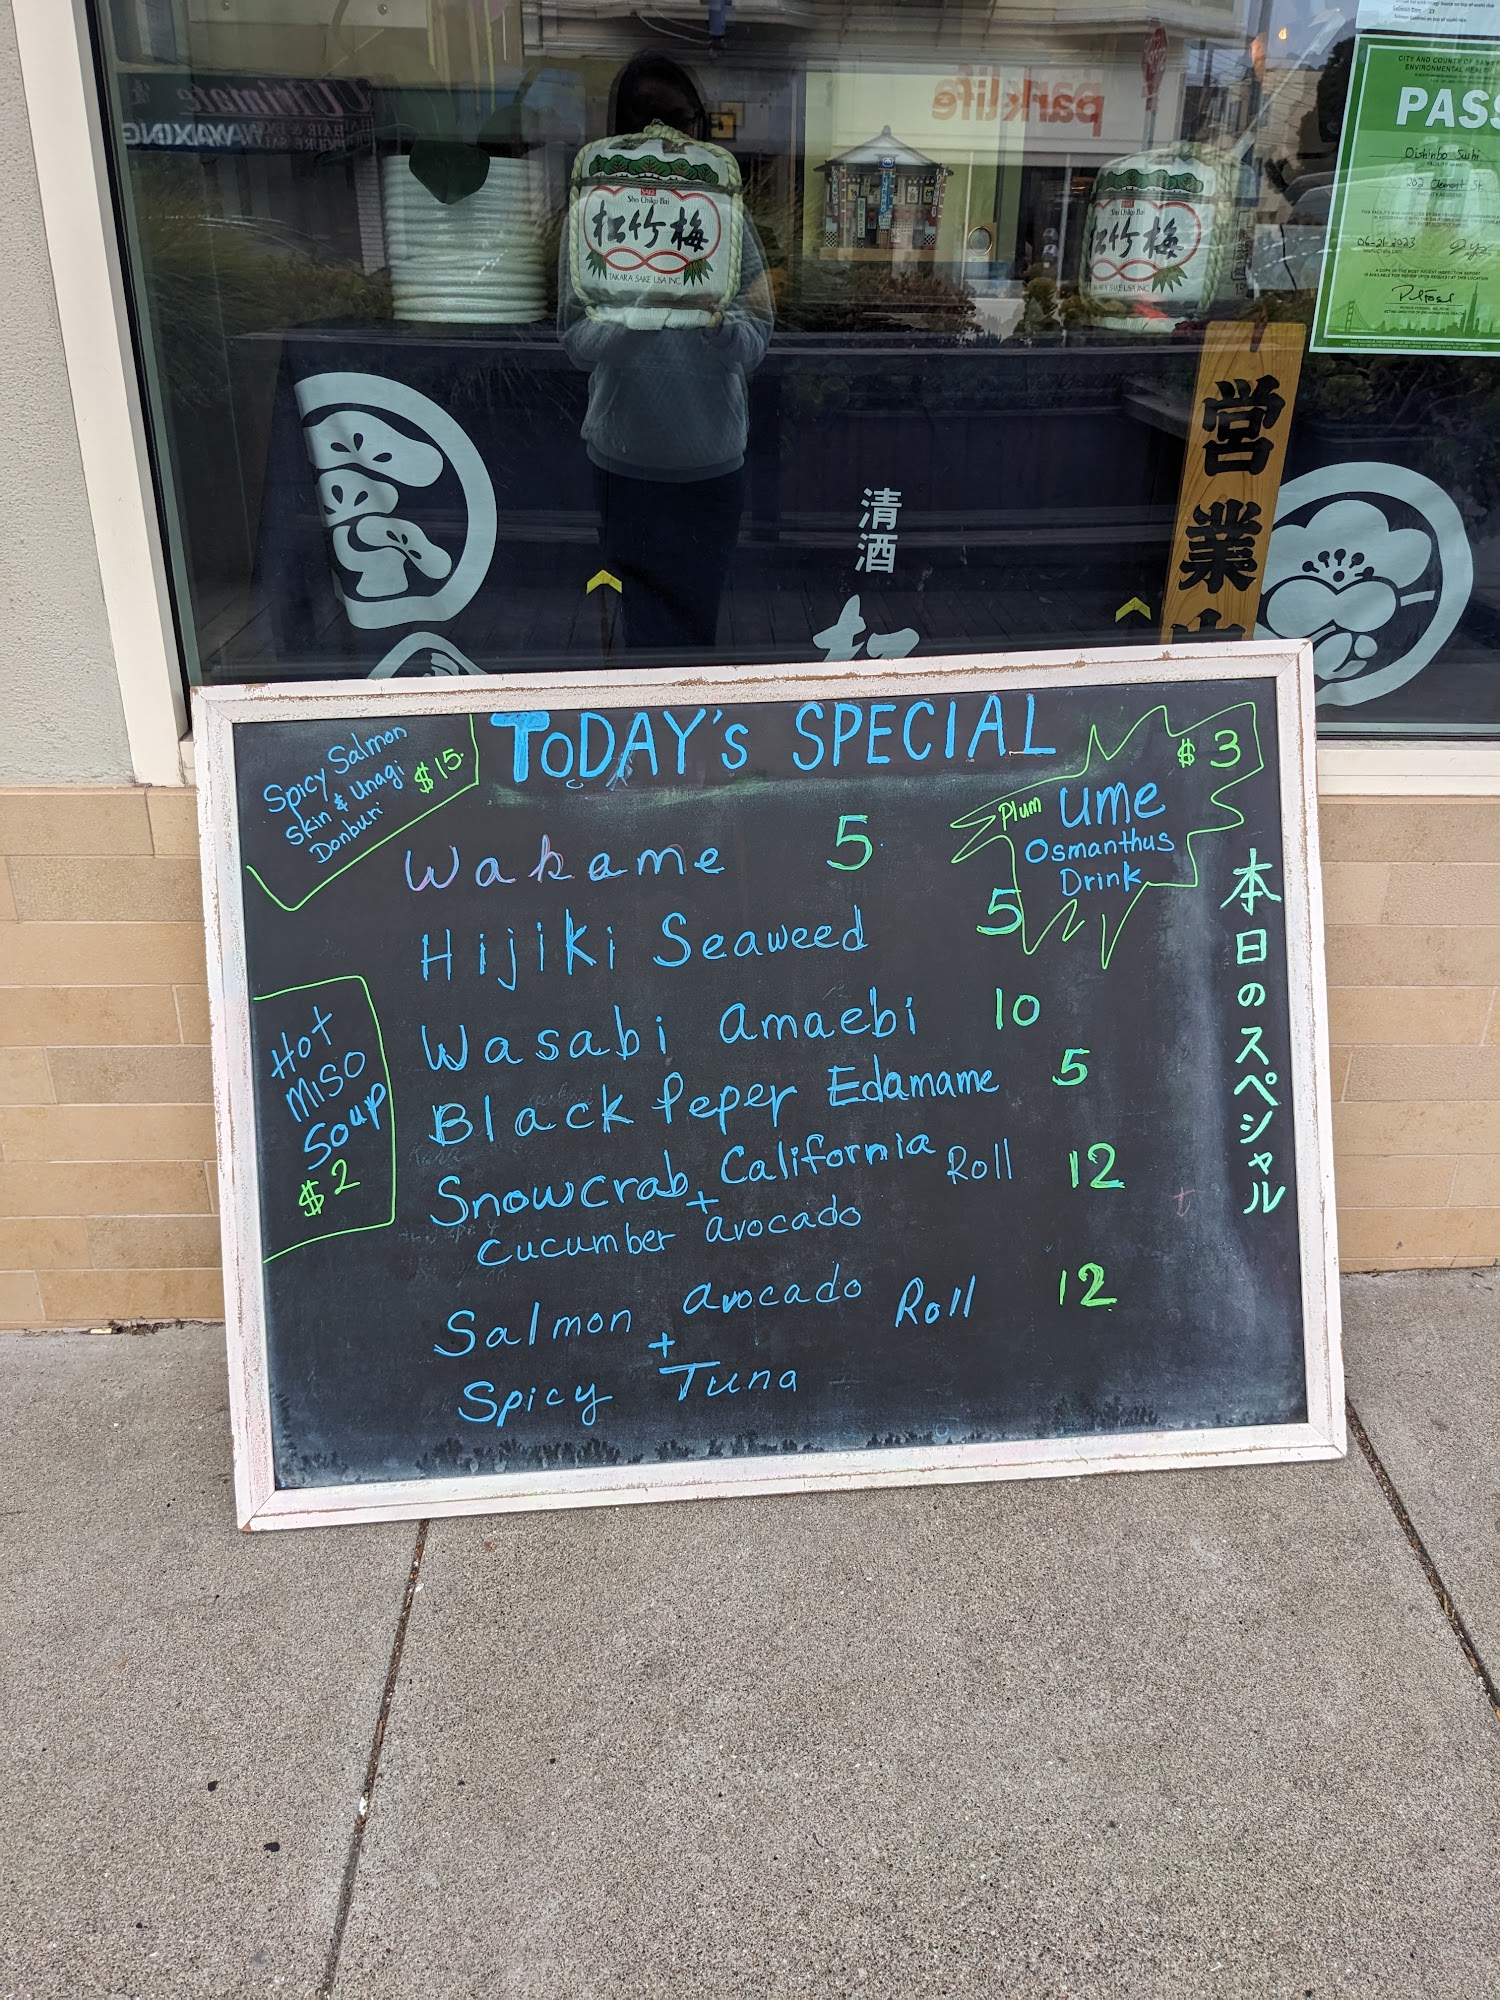 Ultimate
HAIR &
WAXING
FIGURE SALON
parklife
SAKE
Sho Chiku Bai
松竹梅
TAKARA SAKE USA INC
SAKE
Sho Chiku Bai
松竹梅
TAKARA SAKE USA INC
Salmon Don 23
CITY AND COUNTY OF SAN
ENVIRONMENTAL HEALTH
PASS
Oishinbo Sushi
FACILITY NAME
202 Clement St.
FACILITY ADDRESS
06-21-2023
清酒
松
営業中
TODAY'S SPECIAL
Spicy Salmon
Skin & Unagi
Donburi
$15.
$3
Plum Ume
Osmanthus
Drink
Wakame 5
Hijiki Seaweed 5
Wasabi Amaebi 10
Black Peper Edamame 5
Snowcrab California Roll 12
+
Cucumber Avocado
Salmon Avocado Roll 12
+
Spicy Tuna
Hot
Miso
Soup
$2
本日のスペシャル